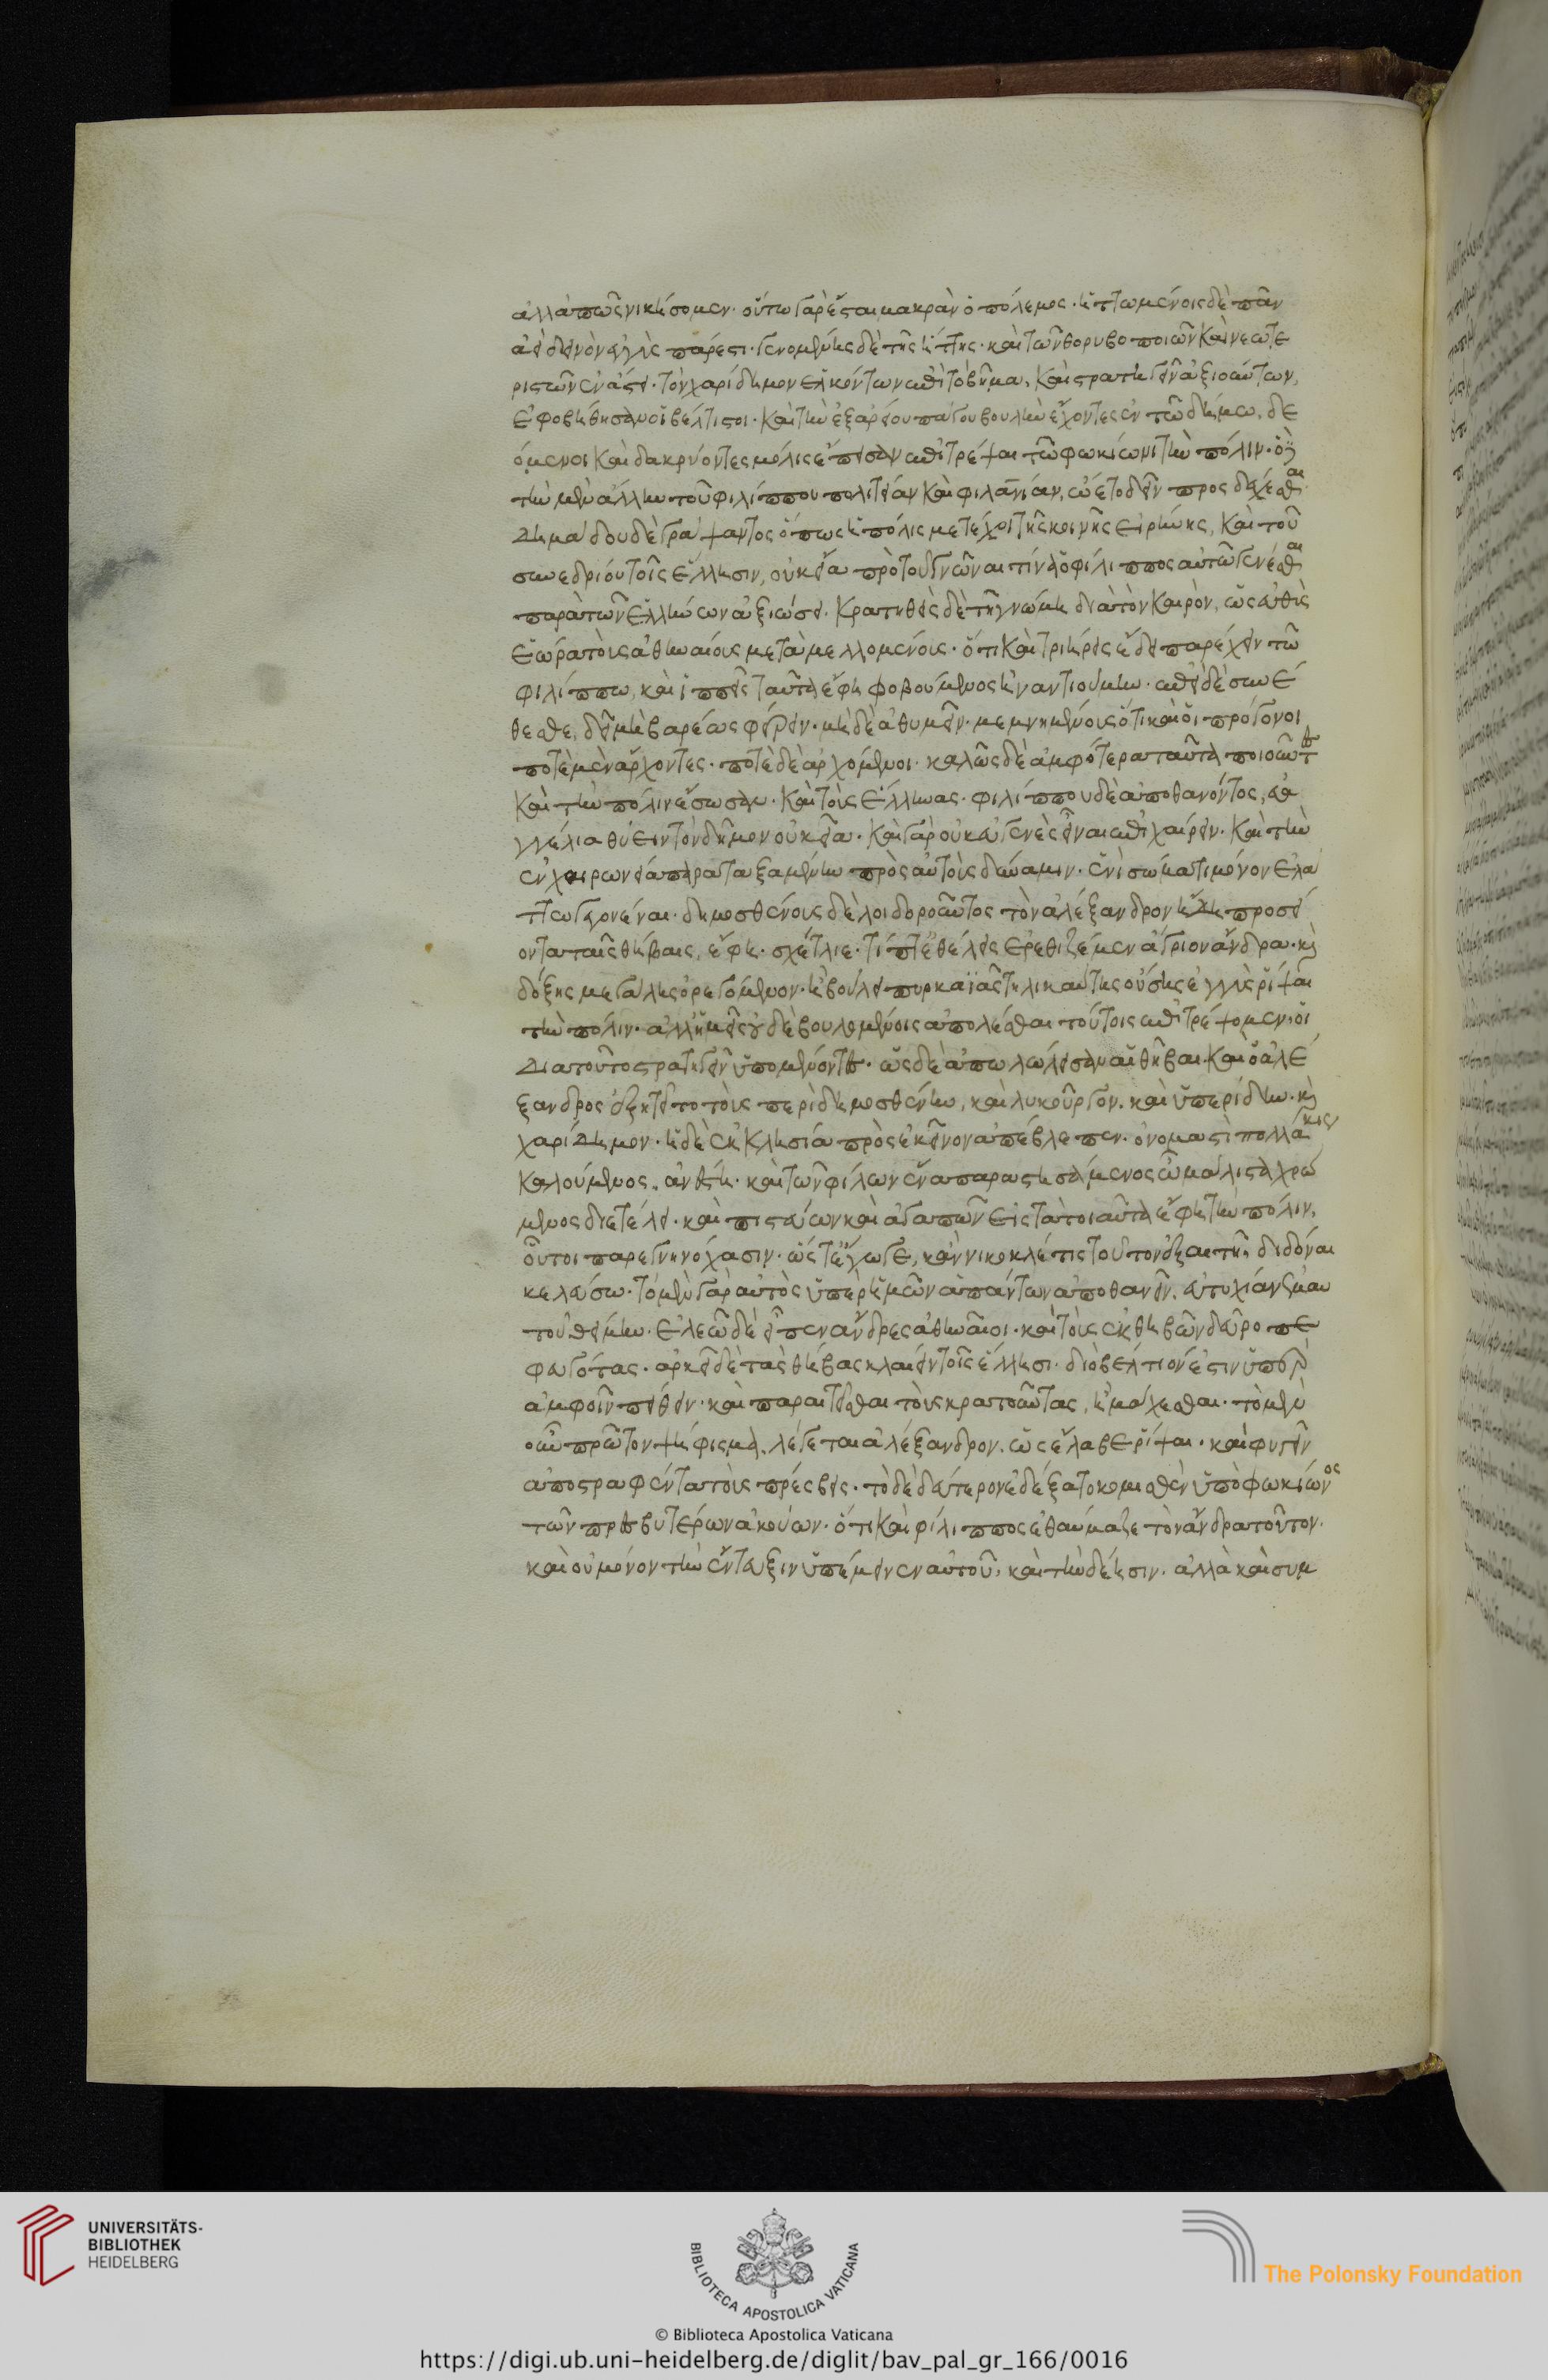 ἀλλὰ πῶς νικήσομεν. οὕτω γὰρ ἔσται μακρὰν ὁ πόλεμος. ἡττωμένοις δὲ πᾶν
ἀεὶ δεινὸν ἐγγὺς πάρεστι. γενομένης δὲ τῆς ἥττης. καὶ τῶν θορυβοποιῶν καὶ νεωτε
ριστῶν ἐν ἄστει. τὸν χαρίδημον ἑλκόντων ἐπὶ τὸ βῆμα. καὶ στρατηγεῖν ἀξιούντων,
ἐφοβήθησαν οἱ βέλτιστοι. καὶ τὴν ἐξ ἀρείου πάγου βουλὴν ἔχοντες ἐν τῷ δήμῳ, δε
όμενοι καὶ δακρύοντες μόλις ἔπεισαν ἐπιτρέψαι τῷ φωκίωνι τὴν πόλιν. ὁ δὲ
τὴν μὲν ἄλλην τοῦ φιλίππου πολιτείαν καὶ φιλανίαν, ᾤετο δεῖν προσδέχεσθαι
δημάδου δὲ γράψαντος ὅπως ἡ πόλις μετέχοι τῆς κοινῆς εἰρήνης, καὶ τοῦ
συνεδρίου τοῖς ἕλλησιν, οὐκ εἴα πρὸ τοῦ γνῶναι τίνα ὁ φίλιππος αὑτῷ γενέσθαι
παρὰ τῶν ἑλλήνων ἀξιώσει. κρατηθεὶς δὲ τῇ γνώμῃ διὰ τὸν καιρὸν, ὡς εὐθὺς
ἑώρα τοὺς ἀθηναίους μεταμελλομένους. ὅτι καὶ τριήρεις ἔδει παρέχειν τῷ
φιλίππῳ, καὶ ἱππεῖς ταῦτα ἔφη φοβούμενος ἠναντιούμην. ἐπεὶ δὲ συνέ
θεσθε, δεῖ μὴ βαρέως φέρειν. μηδὲ ἀθυμεῖν. μεμνημένους ὅτι καὶ οἱ πρόγονοι
ποτὲ μὲν ἄρχοντες. ποτὲ δὲ ἀρχόμενοι. καλῶς δὲ ἀμφότερα ταῦτα ποιοῦντες
καὶ τὴν πόλιν ἔσωσαν. καὶ τοὺς ἕλληνας. φιλίππου δὲ ἀποθανόντος, εὐα
γγέλια θύειν τὸν δῆμον οὐκ εἴα. καὶ γὰρ οὐκ ἀγενὲς εἶναι ἐπιχαίρειν. καὶ τὴν
ἐν χαιρωνείᾳ παραταξαμένην πρὸς αὐτοὺς δύναμιν. ἑνὶ σώματι μόνον ἐλά
ττω γεγονέναι. δημοσθένους δὲ λοιδοροῦντος τὸν ἀλέξανδρον ἤδη προσά
γοντα ταῖς θήβαις, ἔφη. σχέτλιε. τί πτ' ἐθέλεις ἐρεθιζέμεν ἄγριον ἄνδρα. καὶ
δόξης μεγάλης ὀρεγόμενον. ἢ βούλει πυρκαϊᾶς τηλικαύτης οὔσης ἐγγὺς ῥίψαι
τὴν πόλιν. ἀλλ' ἡμεῖς οὐδὲ βουλομένοις ἀπολέσθαι τούτοις ἐπιτρέψομεν. οἱ
διὰ τοῦτο στρατηγεῖν ὑπομένοντες. ὡς δὲ ἀπωλώλεισαν αἱ θῆβαι. καὶ ὁ ἀλέ
ξανδρος ἐξῃτεῖτο τοὺς περὶ δημοσθένην, καὶ λυκοῦργον. καὶ ὑπερίδην. καὶ
χαρίδημον. ἡ δὲ ἐκκλησία πρὸς ἐκεῖνον ἀπέβλεπεν. ὀνομαστὶ πολλάκις
καλούμενος. ἀνέστη. καὶ τῶν φίλων ἕνα παραστησάμενος ᾧ μάλιστα χρώ
μενος διετέλει. καὶ πιστεύων καὶ ἀγαπῶν εἰς τὰ τοιαῦτα ἔφη τὴν πόλιν.
οὗτοι παραγηνόχασιν. ὥστ' ἔγωγε, κἂν νικοκλέα τις τοῦτον ἐξαιτῇ, διδόναι
κελεύσω. τὸ μὲν γὰρ αὐτὸς ὑπὲρ ἡμῶν ἁπάντων ἀποθανεῖν. εὐτυχίαν ἐμαυ
τοῦ θείμην. ἐλεῶ δὲ εἶπεν ἄνδρες ἀθηναῖοι. καὶ τοὺς ἐκ θηβῶν δεῦρο πε
φευγότας. ἀρκεῖ δὲ τὰς θήβας κλαίειν τοῖς ἕλλησι. διὸ βέλτιόν ἐστιν ὑπὲρ
ἀμφοῖν πείθειν. καὶ παραιτεῖσθαι τοὺς κρατοῦντας, ἢ μάχεσθαι. τὸ μὲν
οὖν πρῶτον ψήφισμα. λέγεται ἀλέξανδρον. ὡς ἔλαβε ῥίψαι. καὶ φυγεῖν
ἀποστραφέντα τοὺς πρέσβεις. τὸ δὲ δεύτερον ἐδέξατο κομισθὲν ὑπὸ φωκίωνος
τῶν πρεσβυτέρων ἀκούων. ὅτι καὶ φίλιππος ἐθαύμαζε τὸν ἄνδρα τοῦτον.
καὶ οὐ μόνον τὴν ἔνταξιν ὑπέμεινεν αὐτοῦ, καὶ τὴν δέησιν. ἀλλὰ καὶ συμ
UNIVERSITÄTS-
BIBLIOTHEK
HEIDELBERG
BIBLIOTECA APOSTOLICA VATICANA
The Polonsky Foundation
© Biblioteca Apostolica Vaticana
https://digi.ub.uni-heidelberg.de/diglit/bav_pal_gr_166/0016